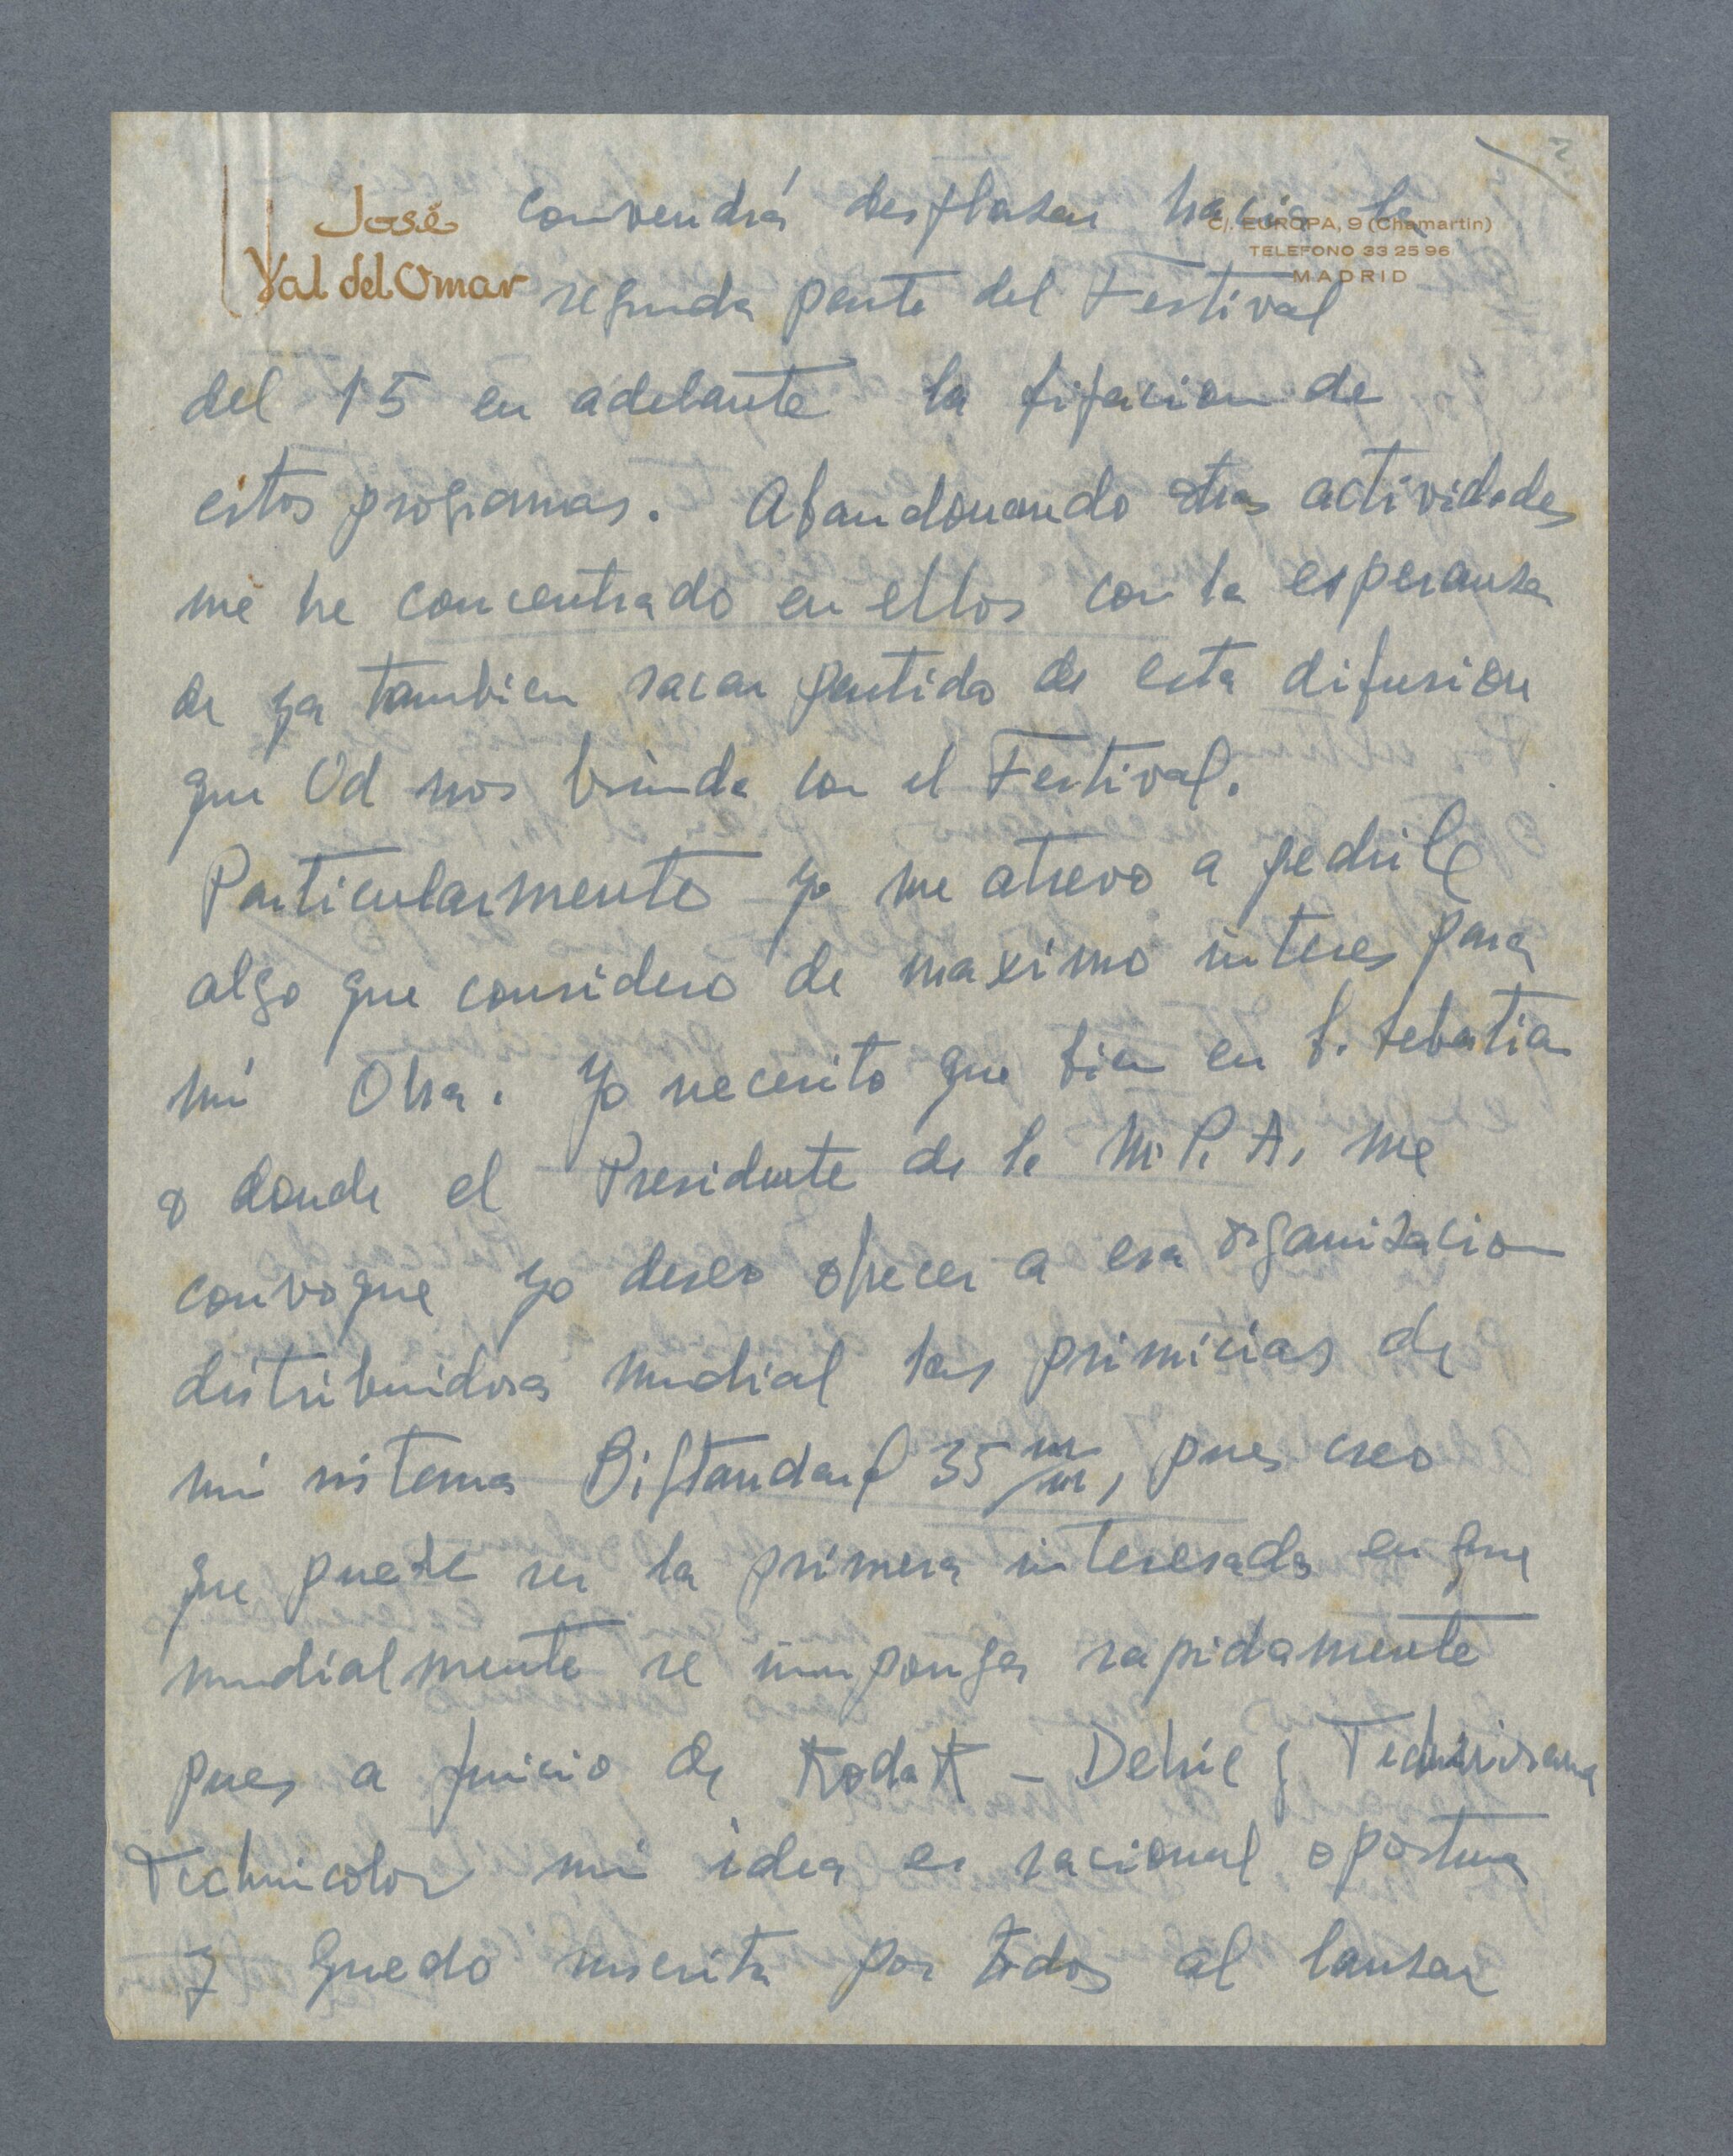 José
Val del Omar
C/. EUROPA, 9 (Chamartin)
TELEFONO 33 25 96
MADRID
convendrá desplazar hacia la
segunda parte del Festival
del 15 en adelante la fijacion de
estos programas. Abandonando otras actividades
me he concentrado en ellos con la esperanza
de ya tambien sacar partido de esta difusion
que Ud nos brinda con el Festival.
Particularmente yo me atrevo a pedirle
algo que considero de maximo interes para
mi Obra. Yo necesito que bien en S. Sebastian
o donde el Presidente de la M.P.A. me
convoque yo deseo ofrecer a esa organizacion
distribuidora mundial las primicias de
mi sistema BiStandard 35 m/m, pues creo
que puede ser la primera interesada en que
mundialmente se imponga rapidamente
pues a juicio de Kodak - Debrie y
Technicolor mi idea es racional oportuna
y quedo inscrita por todos al lanzar